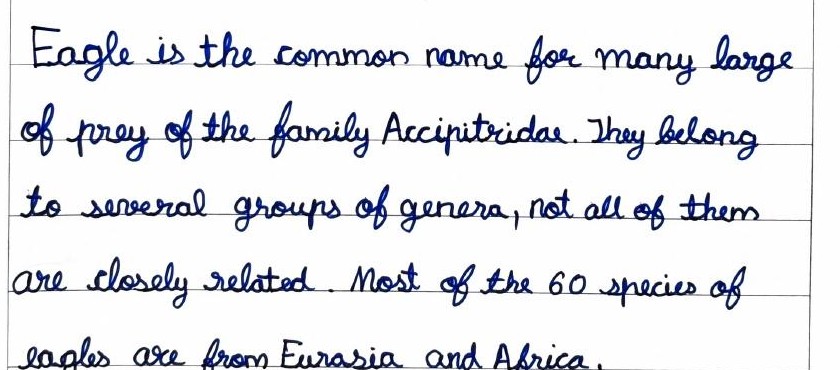 Eagle is the common name for many large
of prey of the family Accipitridae. They belong
to several groups of genera, not all of them
are closely related. Most of the 60 species of
eagles are from Eurasia and Africa.